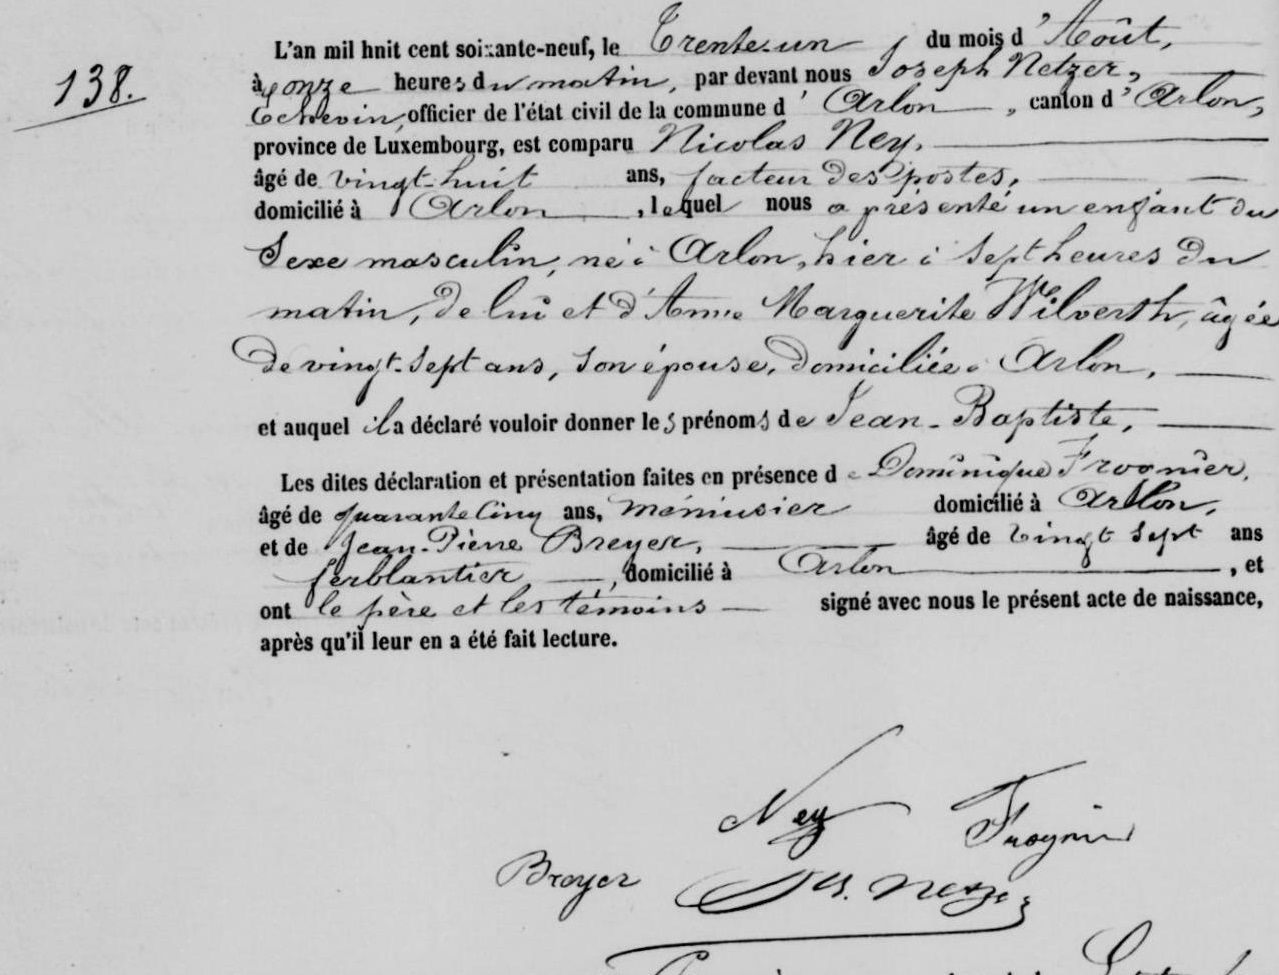 138.
L'an mil huit cent soixante-neuf, le Trente-un du mois d'Août,
à onze heures du matin, par devant nous Joseph Netzer,
Echevin, officier de l'état civil de la commune d'Arlon, canton d'Arlon,
province de Luxembourg, est comparu Nicolas Ney,
âgé de vingt-huit ans, facteur des postes,
domicilié à Arlon, lequel nous a présenté un enfant du
Sexe masculin, né à Arlon, hier à Sept heures du
matin, de lui et d'Anne Marguerite Wilverth, âgée
de vingt-Sept ans, son épouse, domiciliée à Arlon,
et auquel il a déclaré vouloir donner les prénoms de Jean-Baptiste,
Les dites déclaration et présentation faites en présence de Dominique Frognier,
âgé de quarante Cinq ans, menuisier domicilié à Arlon,
et de Jean-Pierre Breyer, âgé de vingt Sept ans
ferblantier, domicilié à Arlon, et
ont le père et les témoins signé avec nous le présent acte de naissance,
après qu'il leur en a été fait lecture.
Ney Frognier
Breyer Jos. Netzer